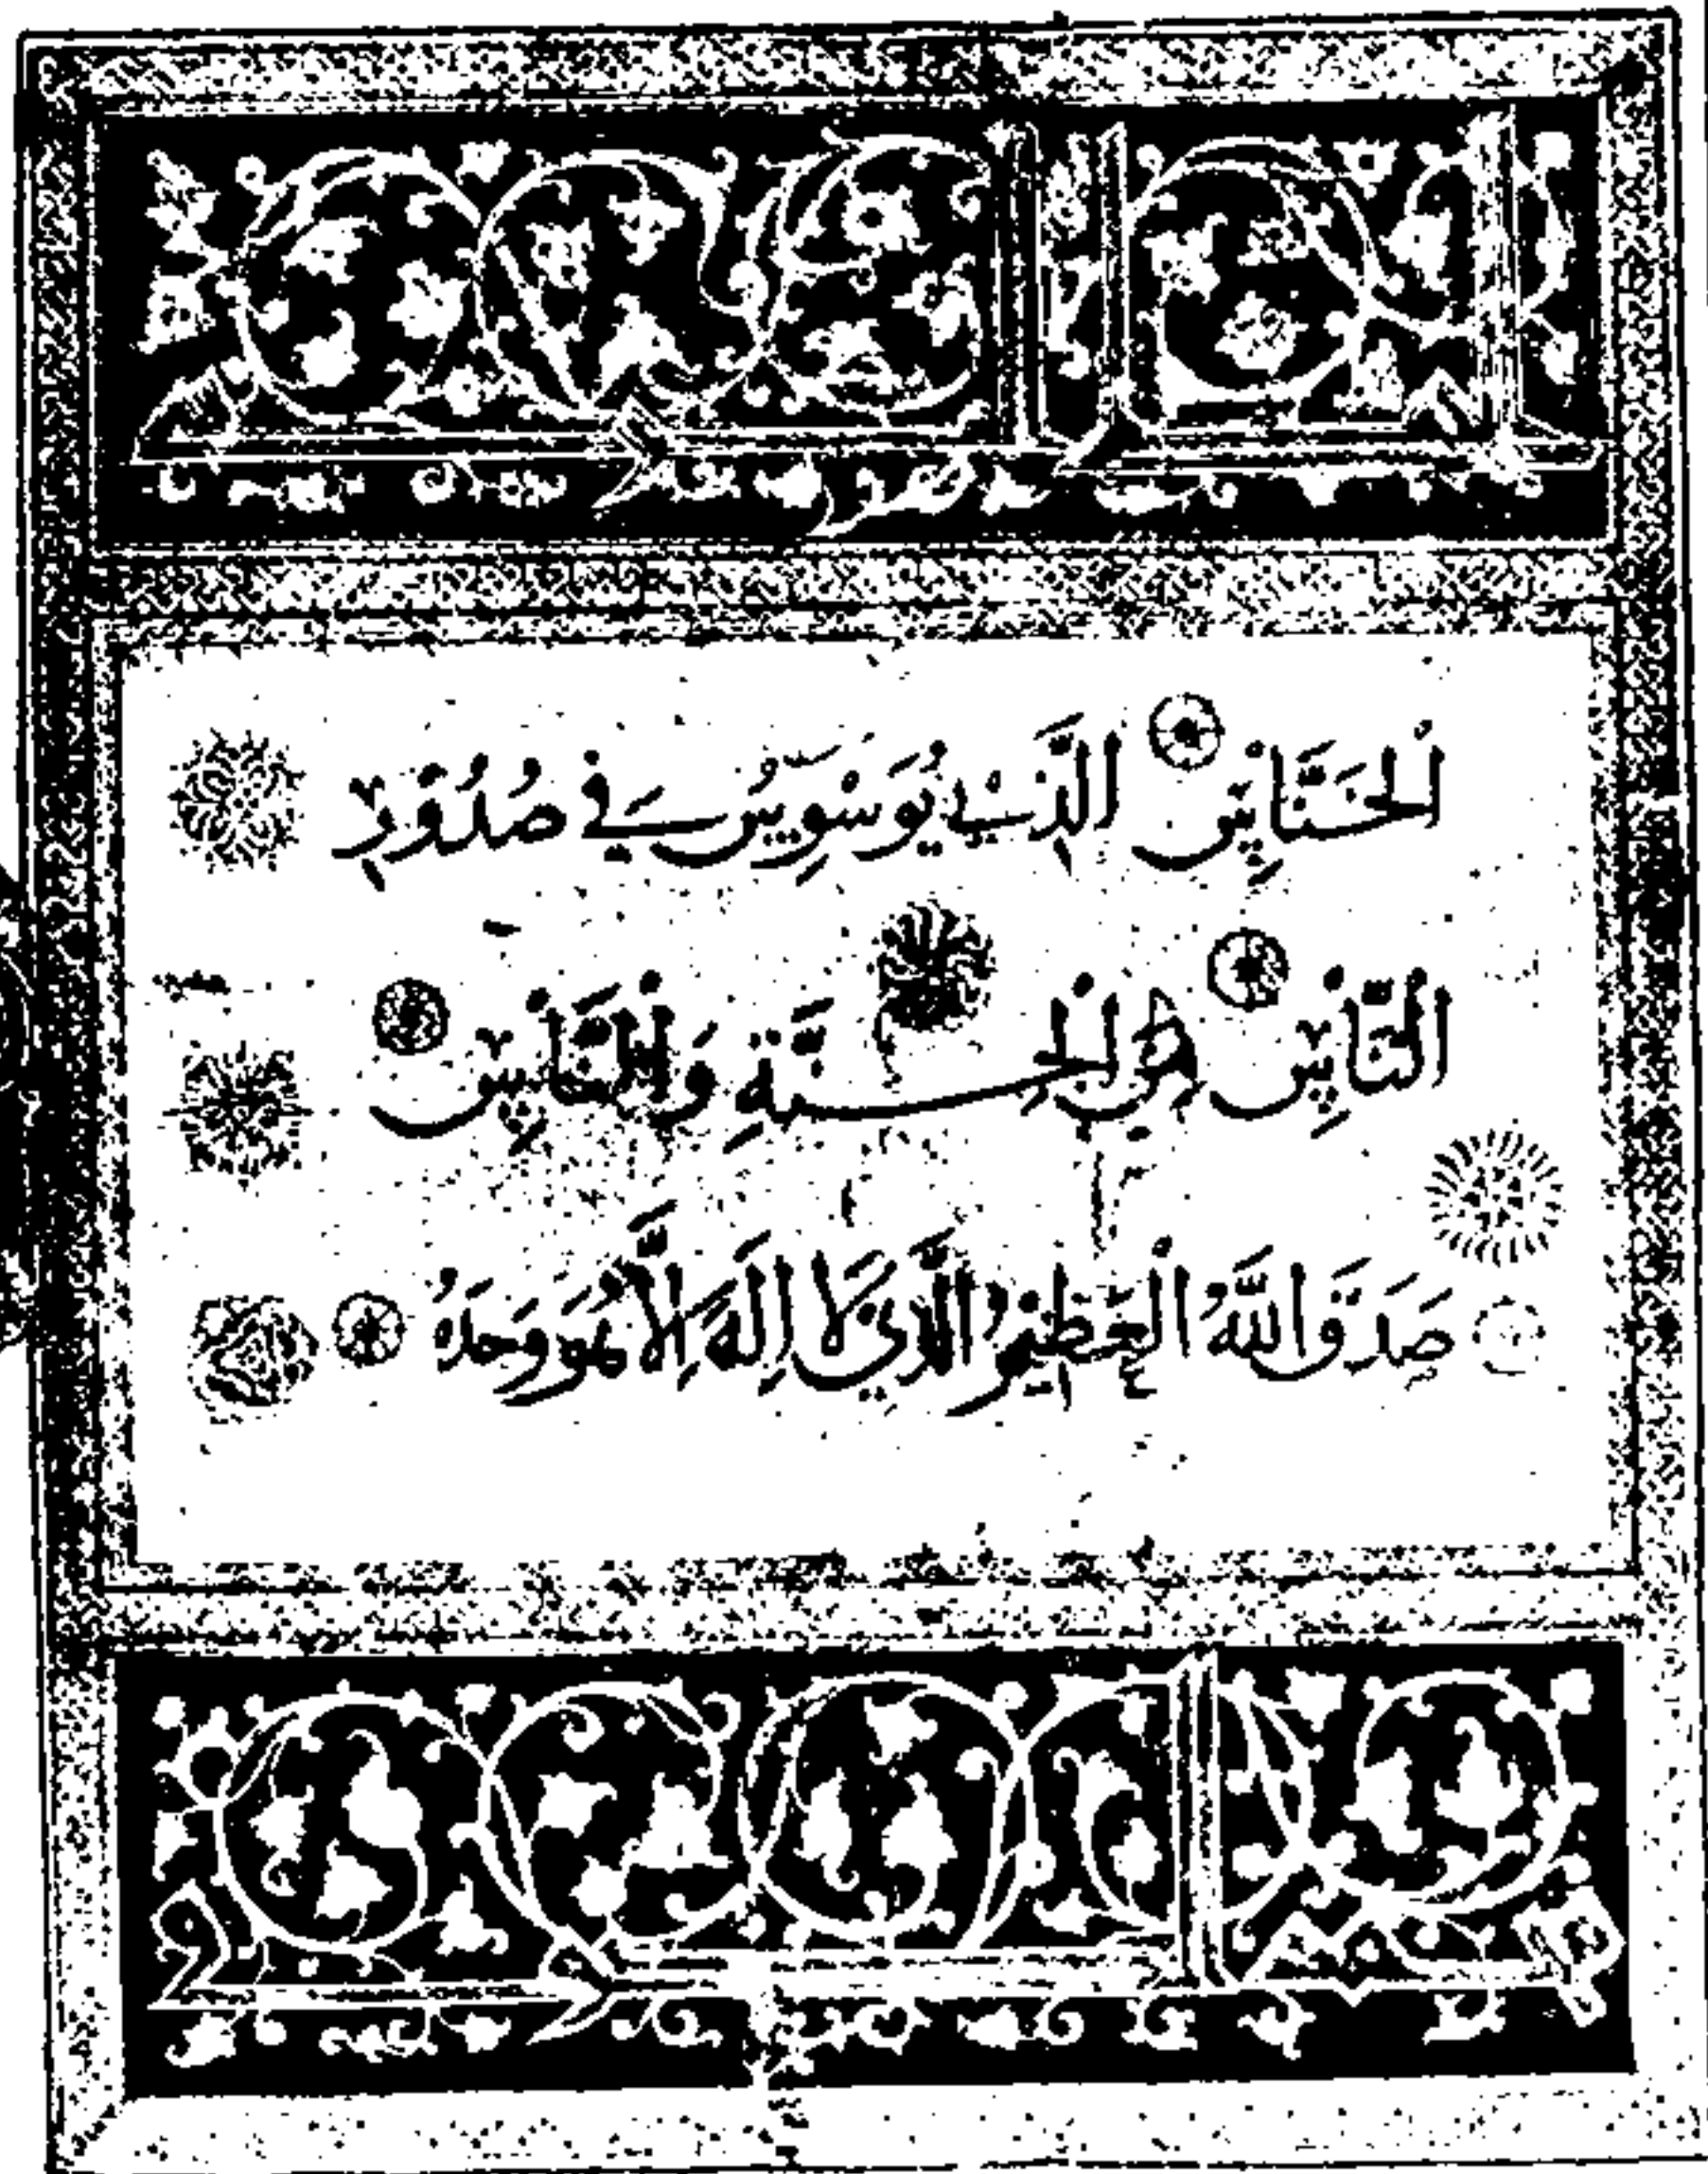 اَلْخَنَّاسِ الَّذِي يُوَسْوِسُ فِي صُدُوْرِ
النَّاسِ مِنَ الْجِنَّةِ وَالنَّاسِ
صَدَقَ اللَّهُ الْعَظِيْمُ الَّذِي لَا اِلٰهَ اِلَّا هُوَ وَحْدَهُ